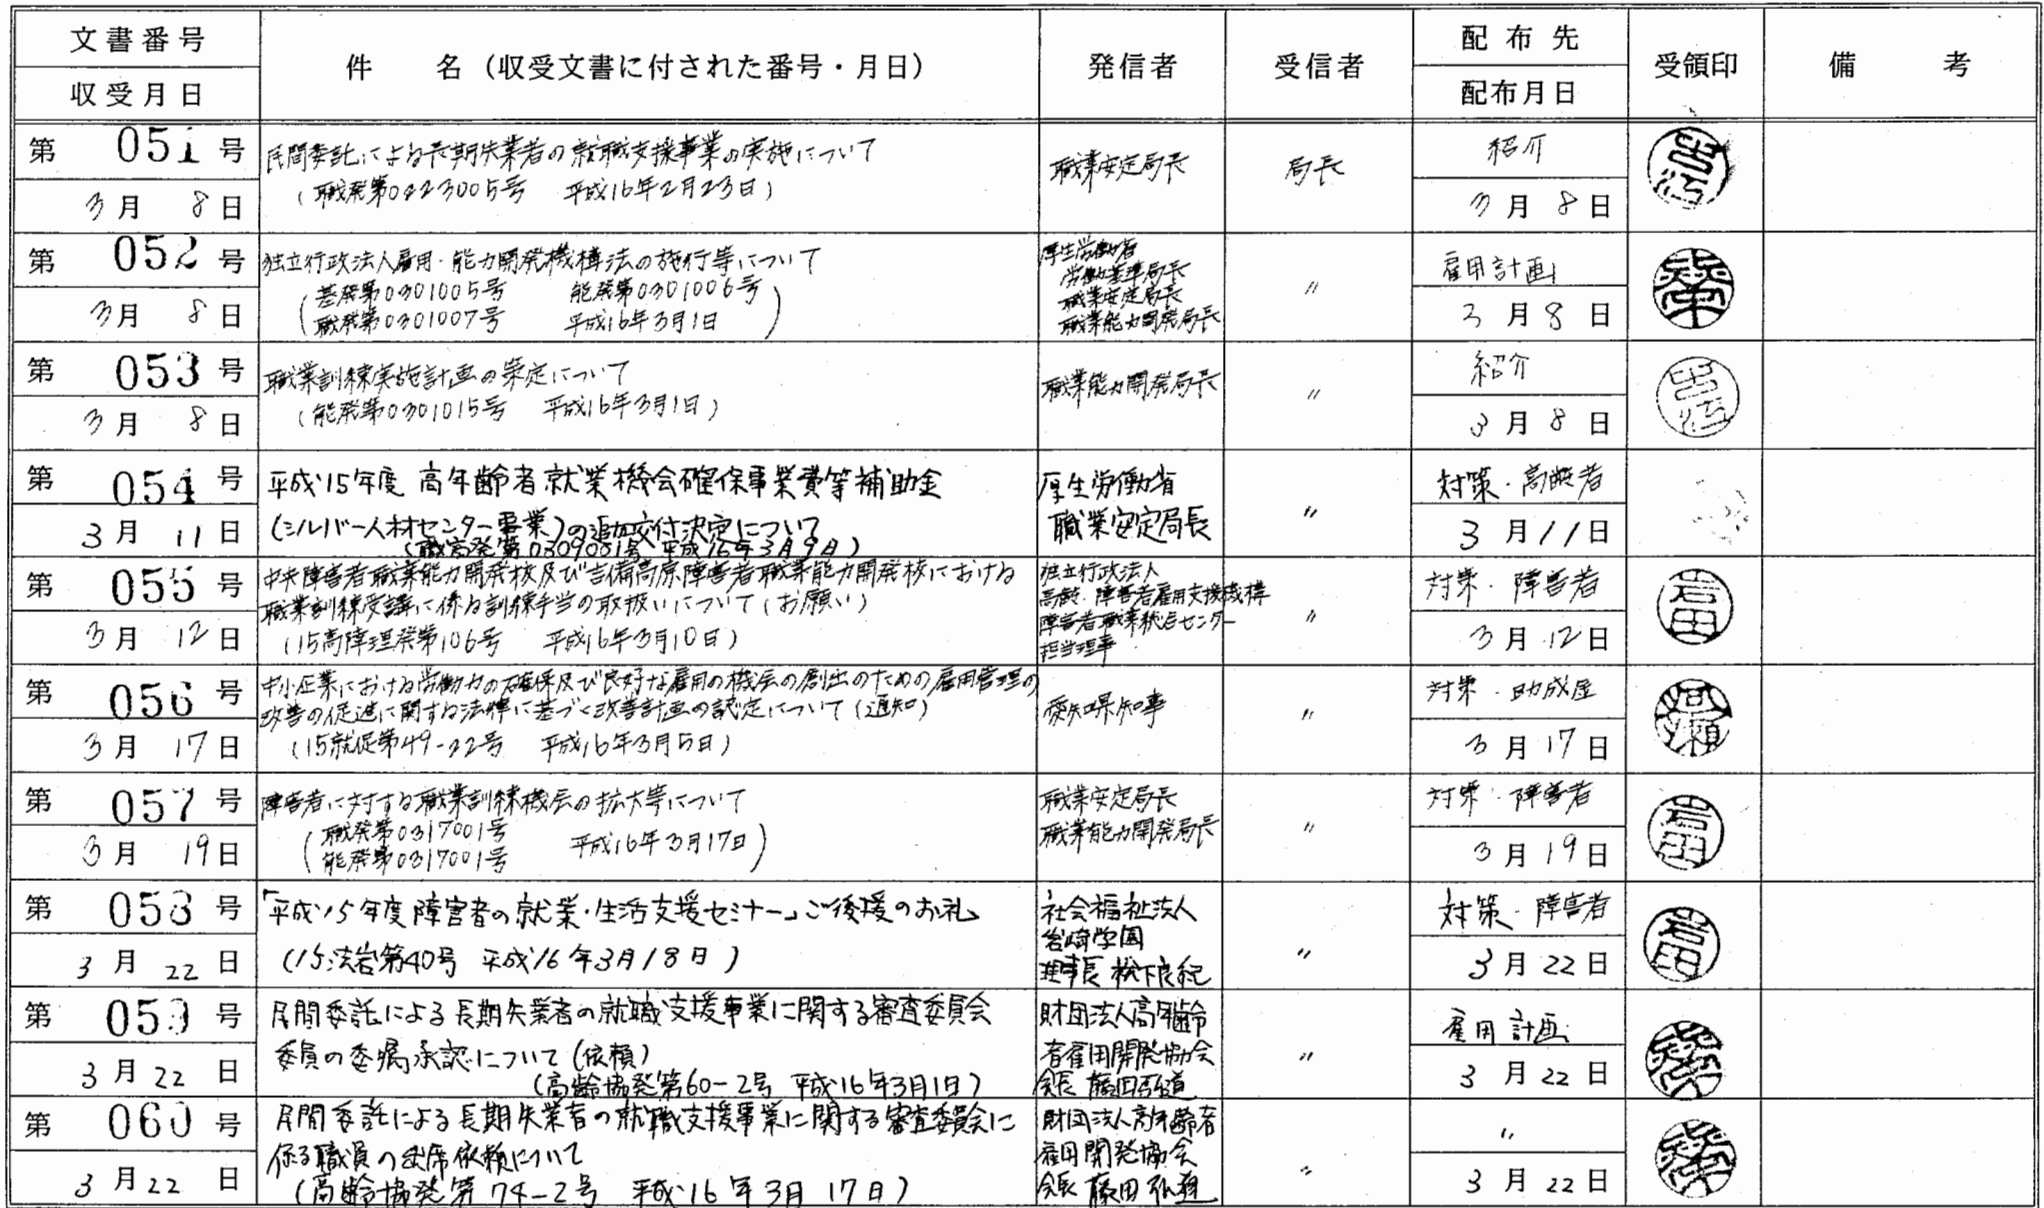 文書番号
収受月日
件 名（収受文書に付された番号・月日）
発信者
受信者
配布先
配布月日
受領印
備 考
第 051 号
3月 8日
民間委託による長期失業者の就職支援事業の実施について
（職発第0223005号 平成16年2月23日）
職業安定局長
局長
紹介
3月 8日
第 052 号
3月 8日
独立行政法人雇用・能力開発機構法の施行等について
（基発第0301005号 能発第0301006号
職発第0301007号 平成16年3月1日）
厚生労働省
労働基準局長
職業安定局長
職業能力開発局長
〃
雇用計画
3月 8日
第 053 号
3月 8日
職業訓練実施計画の策定について
（能発第0301015号 平成16年3月1日）
職業能力開発局長
〃
紹介
3月 8日
第 054 号
3月 11日
平成15年度 高年齢者就業機会確保事業費等補助金
（シルバー人材センター事業）の追加交付決定について
（職高発第0309001号 平成16年3月9日）
厚生労働省
職業安定局長
〃
対策・高齢者
3月11日
第 055 号
3月 12日
中央障害者職業能力開発校及び吉備高原障害者職業能力開発校における
職業訓練受講に係る訓練手当の取扱いについて（お願い）
（15高障理発第106号 平成16年3月10日）
独立行政法人
高齢・障害者雇用支援機構
障害者職業総合センター
担当理事
〃
対策・障害者
3月12日
岩田
第 056 号
3月 17日
中小企業における労働力の確保及び良好な雇用の機会の創出のための雇用管理の
改善の促進に関する法律に基づく改善計画の認定について（通知）
（15就促第49-22号 平成16年3月5日）
愛知県知事
〃
対策・助成金
3月17日
第 057 号
3月 19日
障害者に対する職業訓練機会の拡大等について
（職発第0317001号
能発第0317001号 平成16年3月17日）
職業安定局長
職業能力開発局長
〃
対策・障害者
3月19日
岩田
第 058 号
3月 22日
「平成15年度障害者の就業・生活支援セミナー」ご後援のお礼
（15法岩第40号 平成16年3月18日）
社会福祉法人
岩崎学園
理事長 松下良紀
〃
対策・障害者
3月22日
岩田
第 059 号
3月22日
民間委託による長期失業者の就職支援事業に関する審査委員会
委員の委嘱承認について（依頼）
（高齢協発第60-2号 平成16年3月1日）
財団法人高年齢
者雇用開発協会
会長 藤田弘道
〃
雇用計画
3月22日
第 060 号
3月22日
民間委託による長期失業者の就職支援事業に関する審査委員会に
係る職員の出席依頼について
（高齢協発第74-2号 平成16年3月17日）
財団法人高年齢者
雇用開発協会
会長 藤田弘道
〃
〃
3月22日